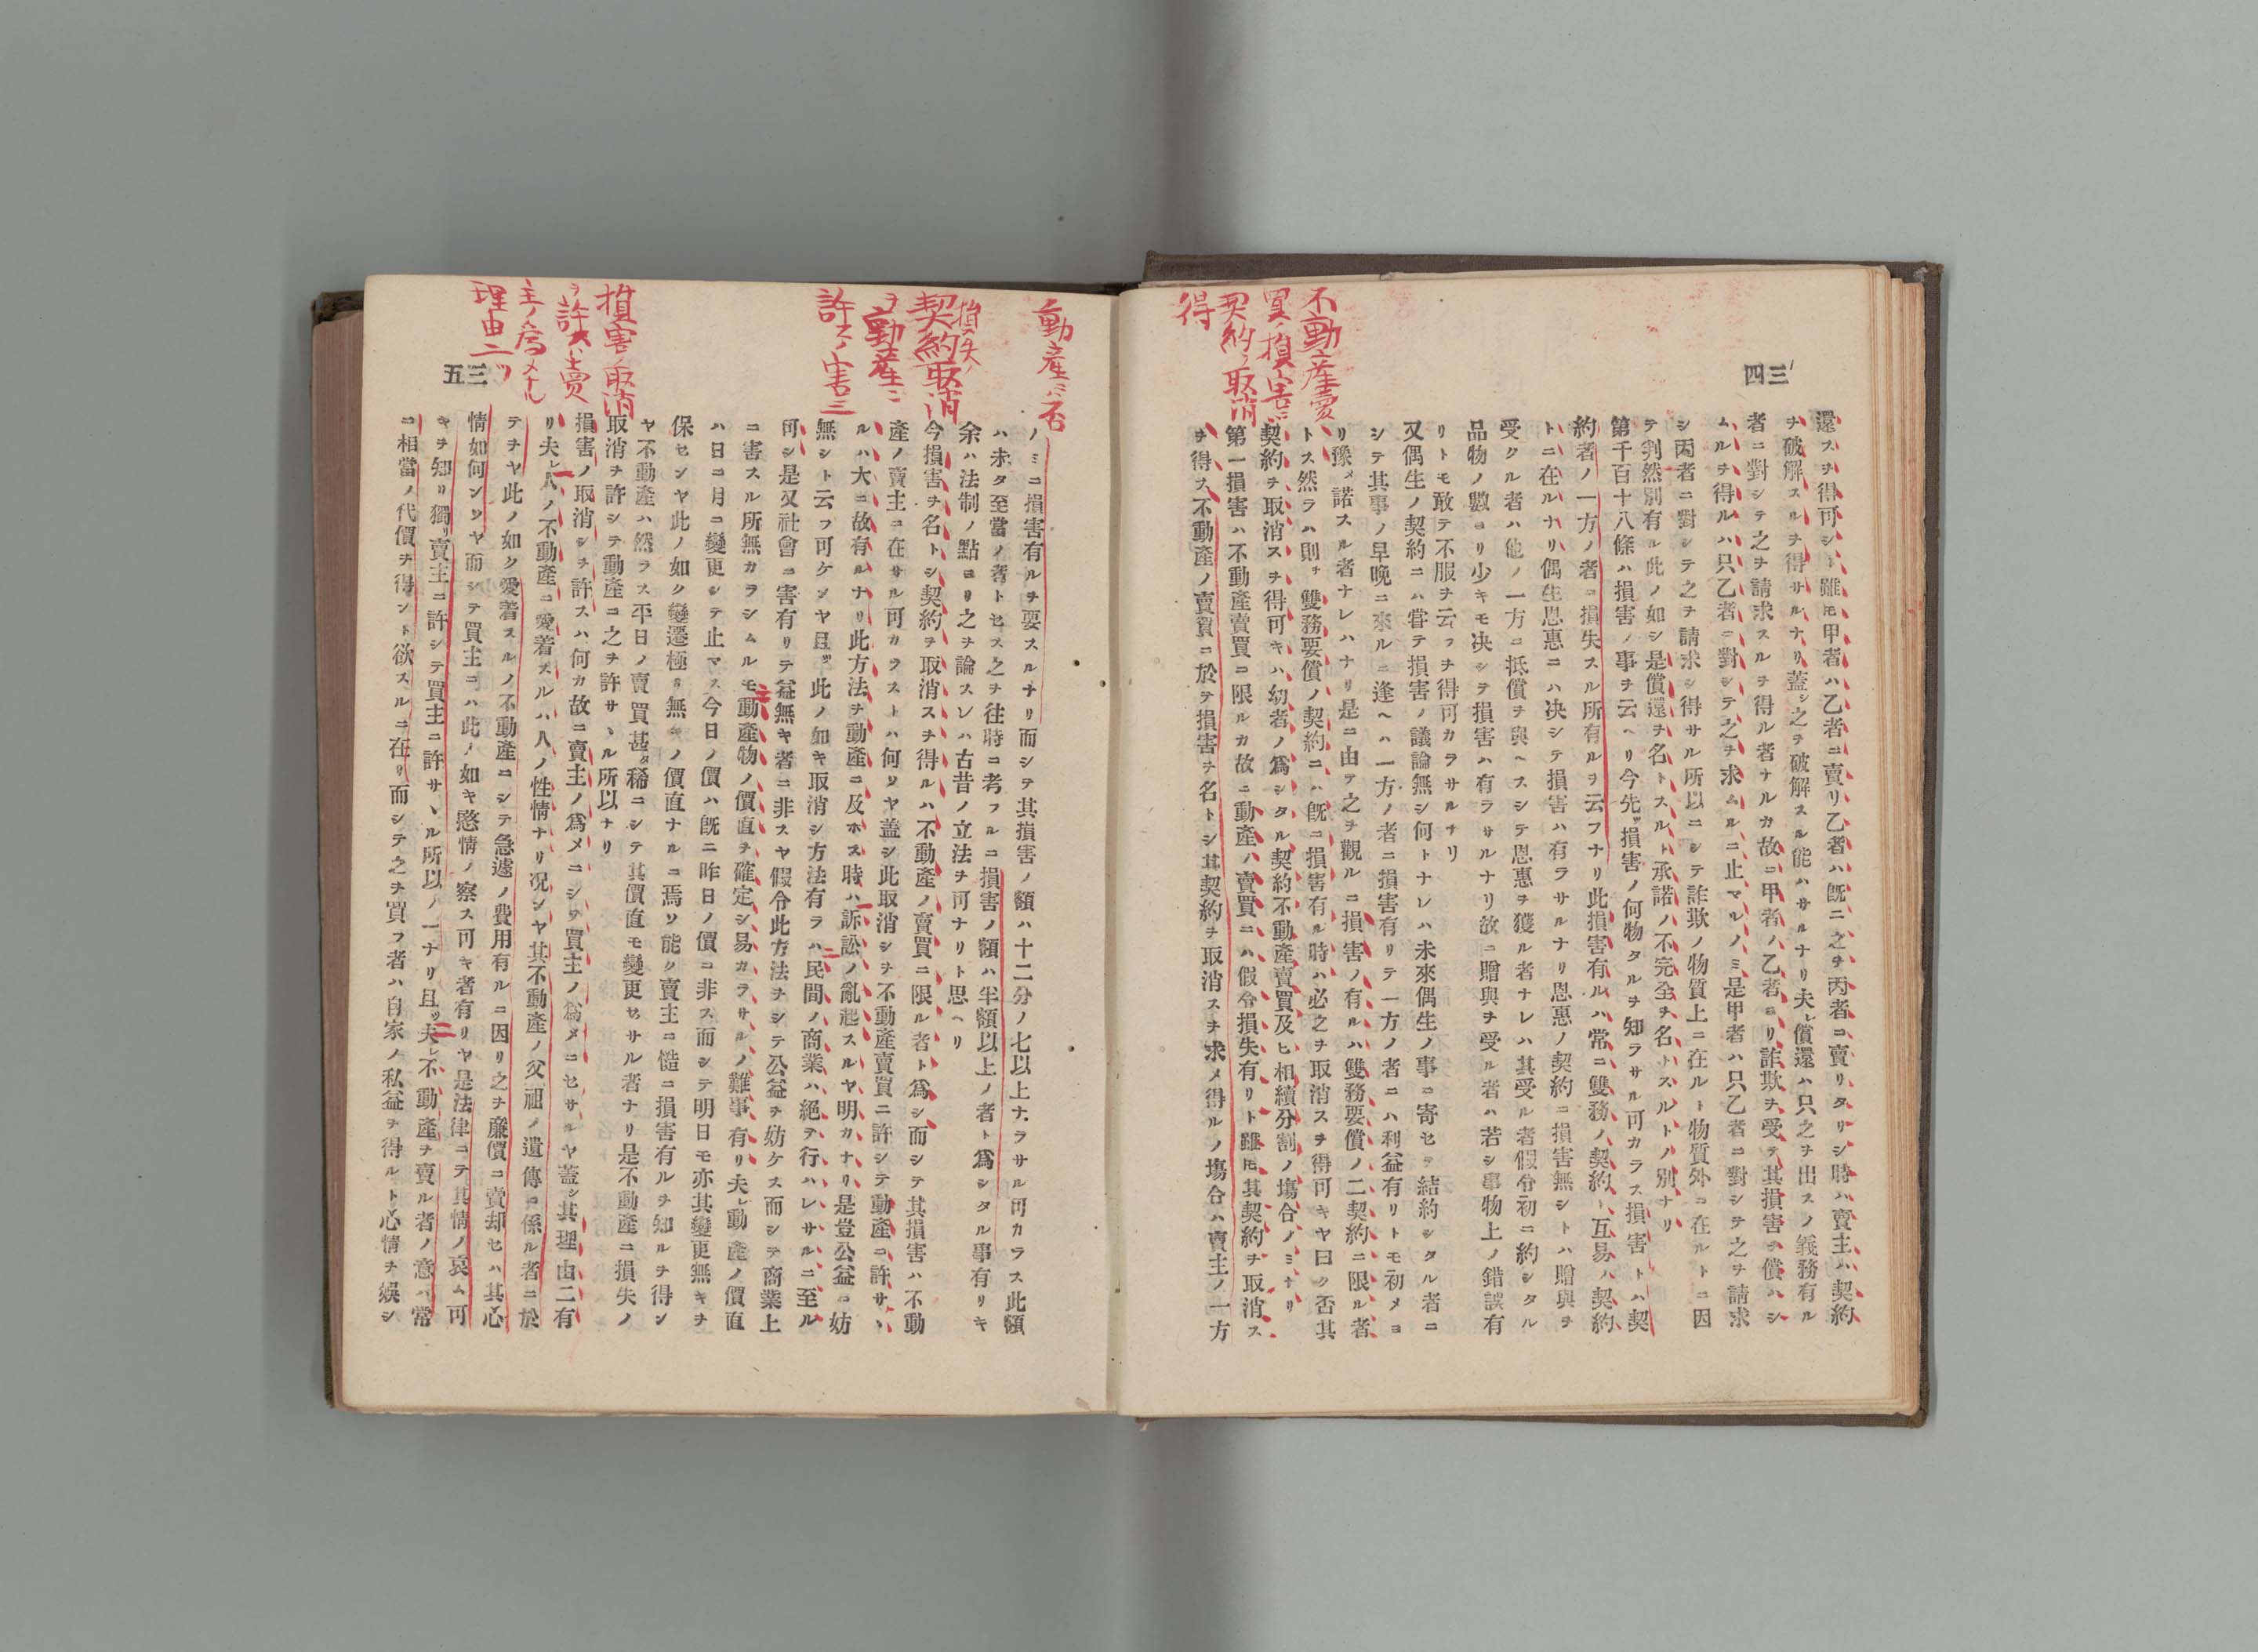 四三
不動產賣
買ノ損害ニ
契約ヲ取消
得
還スヲ得可シト雖モ甲者ハ乙者ニ賣リ乙者ハ既ニ之ヲ丙者ニ賣リタリシ時ハ賣主ハ契約
ヲ破解スルヲ得サルナリ蓋シ之ヲ破解スル能ハサルナリ夫レ償還ハ只之ヲ出スノ義務有ル
者ニ對シテ之ヲ請求スルヲ得ル者ナルカ故ニ甲者ノ乙者ヨリ詐欺ヲ受テ其損害ヲ償ハシ
ムルヲ得ルハ只乙者ニ對シテ之ヲ求ムルニ止マルノミ是甲者ハ只乙者ニ對シテ之ヲ請求
シ丙者ニ對シテ之ヲ請求シ得サル所以ニシテ詐欺ノ物質上ニ在ルト物質外ニ在ルトニ因
テ判然別有ル此ノ如シ是償還ヲ名トスルト承諾ノ不完全ヲ名トスルトノ別ナリ
第千百十八條ハ損害ノ事ヲ云ヘリ今先ツ損害ノ何物タルヲ知ラサル可カラス損害トハ契
約者ノ一方ノ者ニ損失スル所有ルヲ云フナリ此損害有ルハ常ニ雙務ノ契約ト互易ノ契約
トニ在ルナリ偶生恩惠ニハ决シテ損害ハ有ラサルナリ恩惠ノ契約ニ損害無シトハ贈與ヲ
受クル者ハ他ノ一方ニ抵償ヲ與ヘスシテ恩惠ヲ獲ル者ナレハ其受ル者假令初ニ約シタル
品物ノ數ヨリ少キモ决シテ損害ハ有ラサルナリ故ニ贈與ヲ受ル者ハ若シ事物上ノ錯誤有
リトモ敢テ不服ヲ云フヲ得可カラサルナリ
又偶生ノ契約ニハ甞テ損害ノ議論無シ何トナレハ未來偶生ノ事ニ寄セテ結約シタル者ニ
シテ其事ノ早晩ニ來ルニ逢ヘハ一方ノ者ニ損害有リテ一方ノ者ニハ利益有リトモ初メヨ
リ豫メ諾スル者ナレハナリ是ニ由テ之ヲ觀ルニ損害ノ有ルハ雙務要償ノ二契約ニ限ル者
トス然ラハ則チ雙務要償ノ契約ニハ既ニ損害有ル時ハ必之ヲ取消スヲ得可キヤ曰ク否其
契約ヲ取消スヲ得可キハ幼者ノ爲シタル契約不動產賣買及ヒ相續分割ノ塲合ノミナリ
第一損害ハ不動產賣買ニ限ルカ故ニ動產ノ賣買ニハ假令損失有リト雖モ其契約ヲ取消ス
ヲ得ス不動產ノ賣買ニ於テ損害ヲ名トシ其契約ヲ取消スヲ求メ得ルノ塲合ハ賣主ノ一方
五三
動產ハ否
損失ノ
契約取消
ヲ動產ニ
許スノ害三
損害ノ取消
ヲ許スハ賣
主ノ爲メナル
理由二ツ
ノミニ損害有ルヲ要スルナリ而シテ其損害ノ額ハ十二分ノ七以上ナラサル可カラス此額
ハ未タ至當ノ者トセス之ヲ往時ニ考フルニ損害ノ額ハ半額以上ノ者ト爲シタル事有リキ
余ハ法制ノ點ヨリ之ヲ論スレハ古昔ノ立法ヲ可ナリト思ヘリ
今損害ヲ名トシ契約ヲ取消スヲ得ルハ不動產ノ賣買ニ限ル者ト爲シ而シテ其損害ハ不動
產ノ賣主ニ在サル可カラストハ何ソヤ蓋シ此取消シヲ不動產賣買ニ許シテ動產ニ許サヽ
ルハ大ニ故有ルナリ此方法ヲ動產ニ及ホス時ハ訴訟ノ亂起スルヤ明カナリ是豈公益ニ妨
無シト云フ可ケンヤ且ツ此ノ如キ取消シ方法有ラハ民間ノ商業ハ絕テ行ハレサルニ至ル
可シ是又社會ニ害有リテ益無キ者ニ非スヤ假令此方法ヲシテ公益ヲ妨ケス而シテ商業上
ニ害スル所無カラシムルモ動產物ノ價直ヲ確定シ易カラサルノ難事有リ夫レ動產ノ價直
ハ日ニ月ニ變更シテ止マス今日ノ價ハ既ニ昨日ノ價ニ非ス而シテ明日モ亦其變更無キヲ
保センヤ此ノ如ク變遷極リ無キノ價直ナルニ焉ソ能ク賣主ニ慥ニ損害有ルヲ知ルヲ得ン
ヤ不動產ハ然ラス平日ノ賣買甚タ稀ニシテ其價直モ變更セサル者ナリ是不動產ニ損失ノ
取消ヲ許シテ動產ニ之ヲ許サヽル所以ナリ
損害ノ取消シヲ許スハ何カ故ニ賣主ノ爲メニシテ買主ノ爲メニセサルヤ蓋シ其理由二有
リ夫レ人ノ不動產ニ愛着スルハ人ノ性情ナリ况ンヤ其不動產ノ父祖ノ遺傳ニ係ル者ニ於
テヲヤ此ノ如ク愛着スルノ不動產ニシテ急遽ノ費用有ルニ因リ之ヲ廉價ニ賣却セハ其心
情如何ンソヤ而シテ買主ニハ此ノ如キ愍情ノ察ス可キ者有リヤ是法律ニテ其情ノ哀ム可
キヲ知リ獨リ賣主ニ許シテ買主ニ許サヽル所以ノ一ナリ且ツ夫レ不動產ヲ賣ル者ノ意ハ常
ニ相當ノ代價ヲ得ント欲スルニ在リ而シテ之ヲ買フ者ハ自家ノ私益ヲ得ルト心情ヲ娯シ